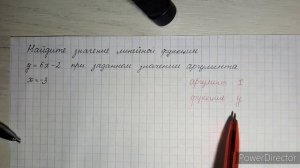 Найдите значение линейной функции
y=6x-2 при заданном значении аргумента
x=-3
аргумент x
функция y
PowerDirector